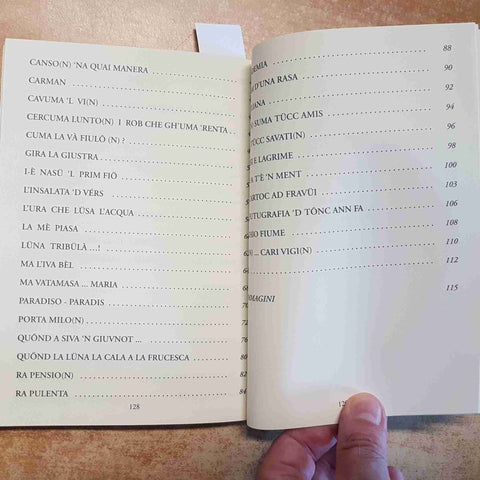 CANSO(N) 'NA QUAI MANERA
CARMAN
CAVUMA 'L VI(N)
CERCUMA LUNTO(N) I ROB CHE GH'UMA 'RENTA
CUMA LA VÀ FIULÔ (N) ?
GIRA LA GIUSTRA
I-È NASÜ 'L PRIM FIÔ
L'INSALATA 'D VÉRS
L'URA CHE LÜSA L'ACQUA
LA MÈ PIASA
LÜNA TRIBÜLÀ ...!
MA L'IVA BÈL
MA VATAMASA ... MARIA
PARADISO - PARADIS
PORTA MILO(N) 72
QUÔND A SIVA 'N GIUVNOT ... 76
QUÔND LA LÜNA LA CALA A LA FRUCESCA 80
RA PENSIO(N) 82
RA PULENTA 84
128
DEMIA 88
D'UNA RASA 90
IANA 92
SUMA TÜCC AMIS 94
TÜCC SAVATI(N) 96
E LAGRIME 98
A T'È 'N MENT 100
RTOC AD FRAVÜI 103
UTUGRAFIA 'D TÔNC ANN FA 106
IO FIUME 108
... CARI VIGI(N) 110
112
MAGINI 115